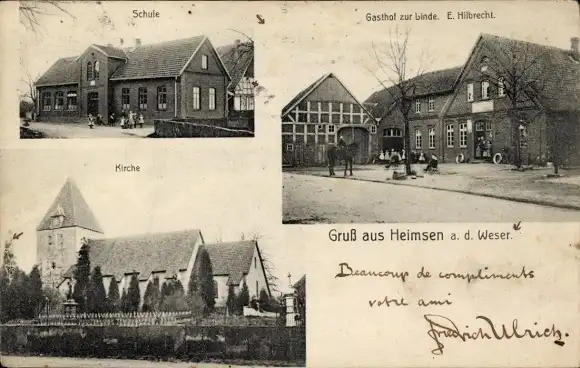 Schule
Gasthof zur Linde. E. Hilbrecht.
Kirche
Gruß aus Heimsen a. d. Weser.
Beaucoup de compliments
votre ami
Friedrich Ulrich.